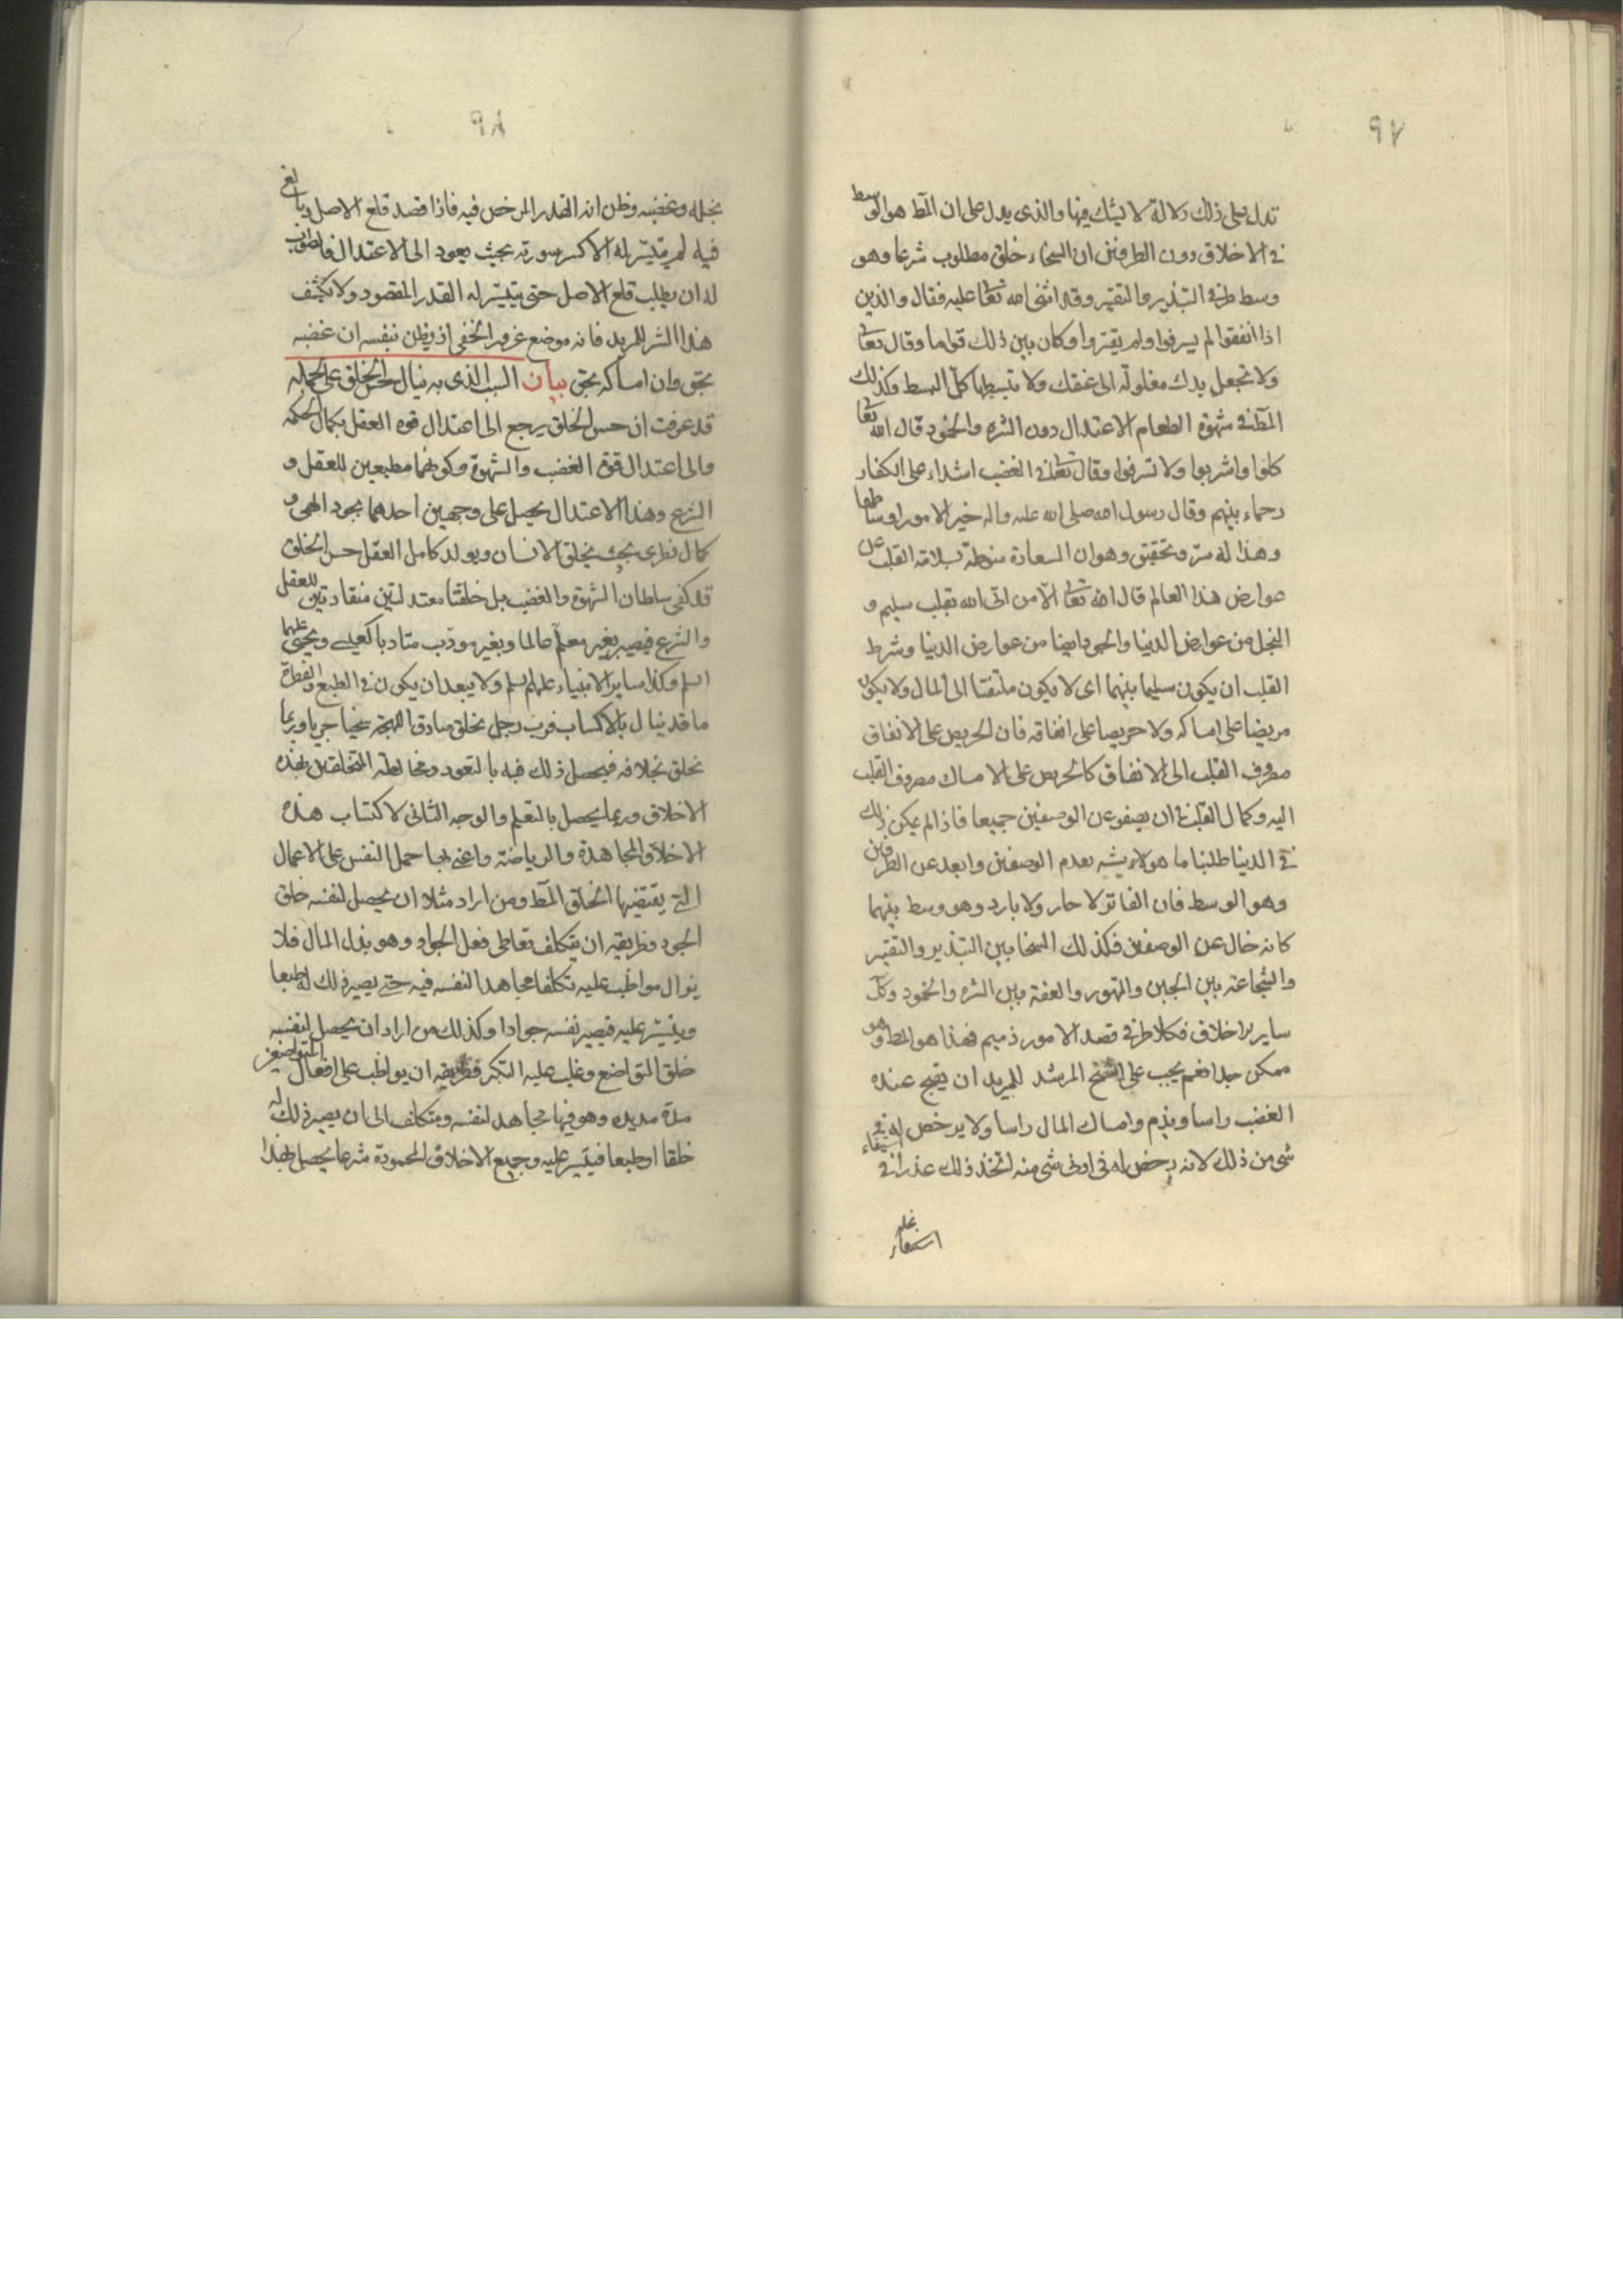 ٩٧
تدل على ذلك دلالة لا يشك فيها والذى يدل على ان المط هو الوسط
فى الاخلاق دون الطرفين ان السخاء خلق مطلوب شرعا وهو
وسط طرفى التبذير والتقتير وقد اثنى الله تعا عليه فقال والذين
اذا انفقوا لم يسرفوا ولم يقتروا وكان بين ذلك قواما وقال تعا
ولا تجعل يدك مغلولة الى عنقك ولا تبسطها كل البسط وكذلك
المط فى شهوة الطعام الاعتدال دون الشره والخمود قال الله تعا
كلوا واشربوا ولا تسرفوا وقال تعا فى الغضب اشداء على الكفار
رحماء بينهم وقال رسول الله صلى الله عليه واله خير الامور اوساطها
وهذا له سر وتحقيق وهو ان السعادة منوطة بسلامة القلب عن
عوارض هذا العالم قال الله تعا الا من اتى الله بقلب سليم و
البخل من عوارض الدنيا والجود ايضا من عوارض الدنيا وشرط
القلب ان يكون سليما بينهما اى لا يكون ملتفتا الى المال ولا يكون
مريضا على امساكه ولا حريصا على انفاقه فان الحريص على الانفاق
مصروف القلب الى الانفاق كالحريص على الامساك مصروف القلب
اليه وكمال القلب فى ان يصفو عن الوصفين جميعا فاذا لم يكن ذلك
فى الدنيا طلبنا ما هو لا يشبه بعدم الوصفين وابعد عن الطرفين
وهو الوسط فان الفاتر لا حار ولا بارد وهو وسط بينهما
كانه خال عن الوصفين فكذلك السخا بين التبذير والتقتير
والشجاعة بين الجبن والتهور والعفة بين الشره والخمود وكك
ساير الاخلاق فكلا طرفى قصد الامور ذميم فهذا هو المط وهو
ممكن جدا نعم يجب على الشيخ المرشد للمريد ان يقبح عنده
الغضب راسا ويذم وامساك المال راسا ولا يرخص له فى
شى من ذلك لانه يرخص له فى ادنى شى منه اتخذ ذلك عذرا فى استبقاء
بخله
٩٨
بخله وغضبه وظن انه القدر المرخص فيه فاذا قصد قلع الاصل وبالغ
فيه لم يتيسر له الا كسر سورته بحيث يعود الى الاعتدال فالصواب
له ان يطلب قلع الاصل حتى يتيسر له القدر المقصود ولا يكشف
هذا السر للمريد فانه موضع غرور الخفى اذ يظن بنفسه ان غضبه
بحق وان امساكه بحق بيان السبب الذى به ينال حسن الخلق على الجملة
قد عرفت ان حسن الخلق يرجع الى اعتدال قوه العقل بكمال الحكمه
والى اعتدال قوة الغضب والشهوة وكونهما مطيعين للعقل و
الشرع وهذا الاعتدال يحصل على وجهين احدهما بجود الهى و
كمال فطرى بحيث يخلق الانسان ويولد كامل العقل حسن الخلق
قد كفى سلطان الشهوة والغضب بل خلقتا معتدلتين منقادتين للعقل
والشرع فيصير بغير معلم عالما وبغير مودب متادبا كعيسى ويحيى عليهما
السلم وكذا ساير الانبياء عليهم السلم ولا يبعد ان يكون فى الطبع والفطرة
ما قد ينال بالاكتساب فرب رجل خلق صادق اللهجة سخيا جريا وربما
يخلق بخلافه فيحصل ذلك فيه بالتعود ومخالطة المتخلقين بهذه
الاخلاق وربما يحصل بالتعلم والوجه الثانى لاكتساب هذه
الاخلاق المجاهدة والرياضة واعنى بها حمل النفس على الاعمال
التى يقتضيها الخلق المط ومن اراد مثلا ان يحصل لنفسه خلق
الجود فطريقه ان يتكلف تعاطى فعل الجواد وهو بذل المال فلا
يزال مواظب عليه تكلفا مجاهدا لنفسه فيه حتى يصير ذلك له طبعا
ويتيسر عليه فيصير نفسه جوادا وكذلك من اراد ان يحصل لنفسه
خلق التواضع وغلب عليه التكبر فطريقه ان يواظب على افعال المتواضعين
مدة مديده وهو فيها مجاهد لنفسه ومتكلف الى ان يصير ذلك له
خلقا وطبعا فيتيسر عليه وجميع الاخلاق المحمودة شرعا يحصل بهذا